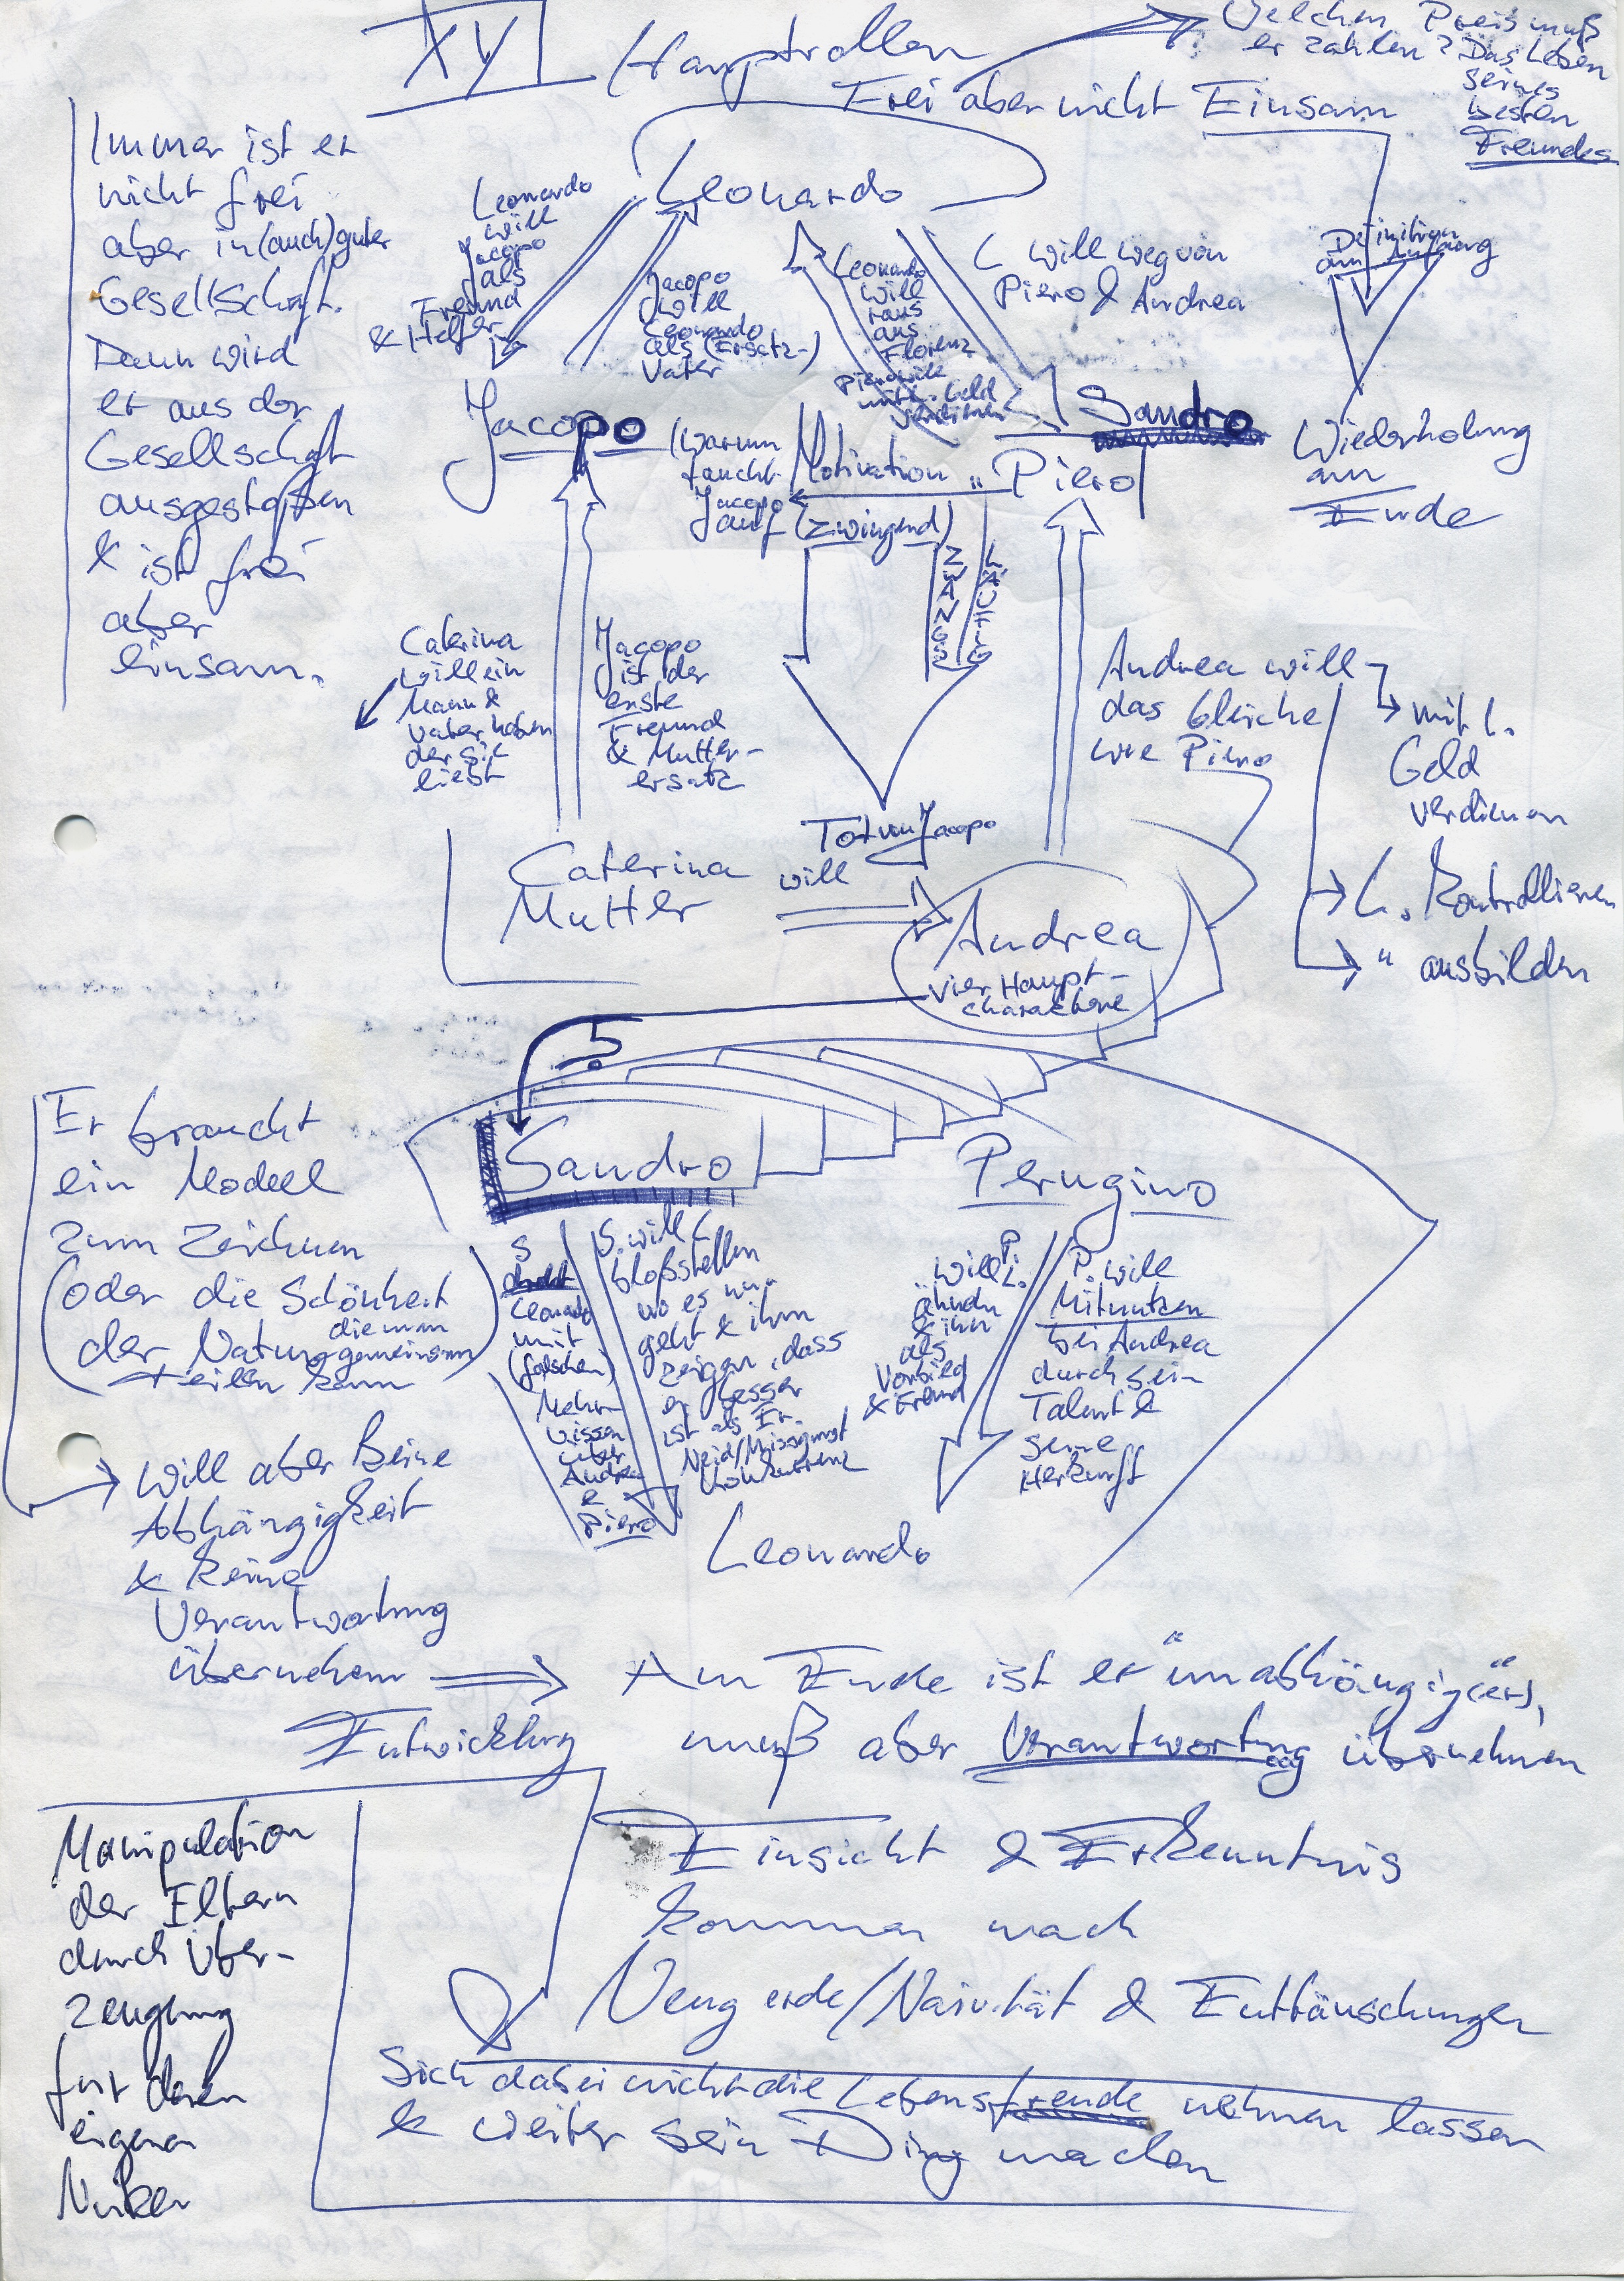 XVI Hauptrollen
Welchen Preis muß
er zahlen? Das Leben
seines
besten
Freundes
Frei aber nicht Einsam
Immer ist er
nicht frei
aber in (auch) guter
Gesellschaft.
Dann wird
er aus der
Gesellschaft
ausgestoßen
& ist frei
aber
einsam.
Leonardo
Leonardo
will
Jacopo
als
Freund
& Helfer
Jacopo
will
Leonardo
als (Ersatz-)
Vater
Leonardo
will
raus
aus
Florenz
Piero will
mit L. Geld
verdienen
L will weg von
Piero & Andrea
Definition
am Anfang
Wiederholung
am
Ende
Jacopo
(Warum
taucht
Jacopo
auf (zwingend)
Motivation "
Sandro
Piero
ZWANGS
LÄUFIG
Caterina
will ein
Mann &
Vater haben
der sie
liebt
Jacopo
ist der
erste
Freund
& Mutter-
ersatz
Andrea will
das Gleiche
wie Piero
mit L.
Geld
verdienen
L. Kontrollieren
" ausbilden
Tot von Jacopo
Caterina will
Mutter
Andrea
Vier Haupt-
charaktere
?
Sandro
Perugino
Er braucht
ein Modell
zum Zeichnen
(oder die Schönheit
der Natur die man
gemeinsam
teilen kann)
Will aber keine
Abhängigkeit
& keine
Verantwortung
übernehmen
S
Leonardo
mit
(falschen)
Mehr-
wissen
über
Andrea
&
Piero
S. will L
bloßstellen
wo es nur
geht & ihm
zeigen, dass
er besser
ist als Er.
Neid/Missgunst
Konkurrenz
P.
will L.
ähneln
& ihn
als
Vorbild
& Freund
P. will
Mitnutzen
bei Andrea
durch sein
Talent &
seine
Herkunft
Leonardo
Am Ende ist er "unabhängig(er)",
muß aber Verantwortung übernehmen
Entwicklung
Einsicht & Erkenntnis
kommen nach
Neugierde/Naivität & Enttäuschungen
Sich dabei nicht die Lebensfreude nehmen lassen
& weiter sein Ding machen
Manipulation
der Eltern
durch Über-
zeugung
für deren
eigenen
Nutzen